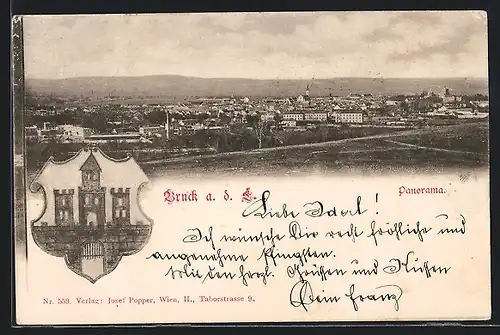 Bruck a. d. L.
Panorama.
Liebe Ida!
Ich wünsche Dir recht fröhliche und
angenehme Pfingsten.
Mit den herzl. Grüssen und Küssen
Dein Franz
Nr. 559. Verlag: Josef Popper, Wien, II., Taborstrasse 9.